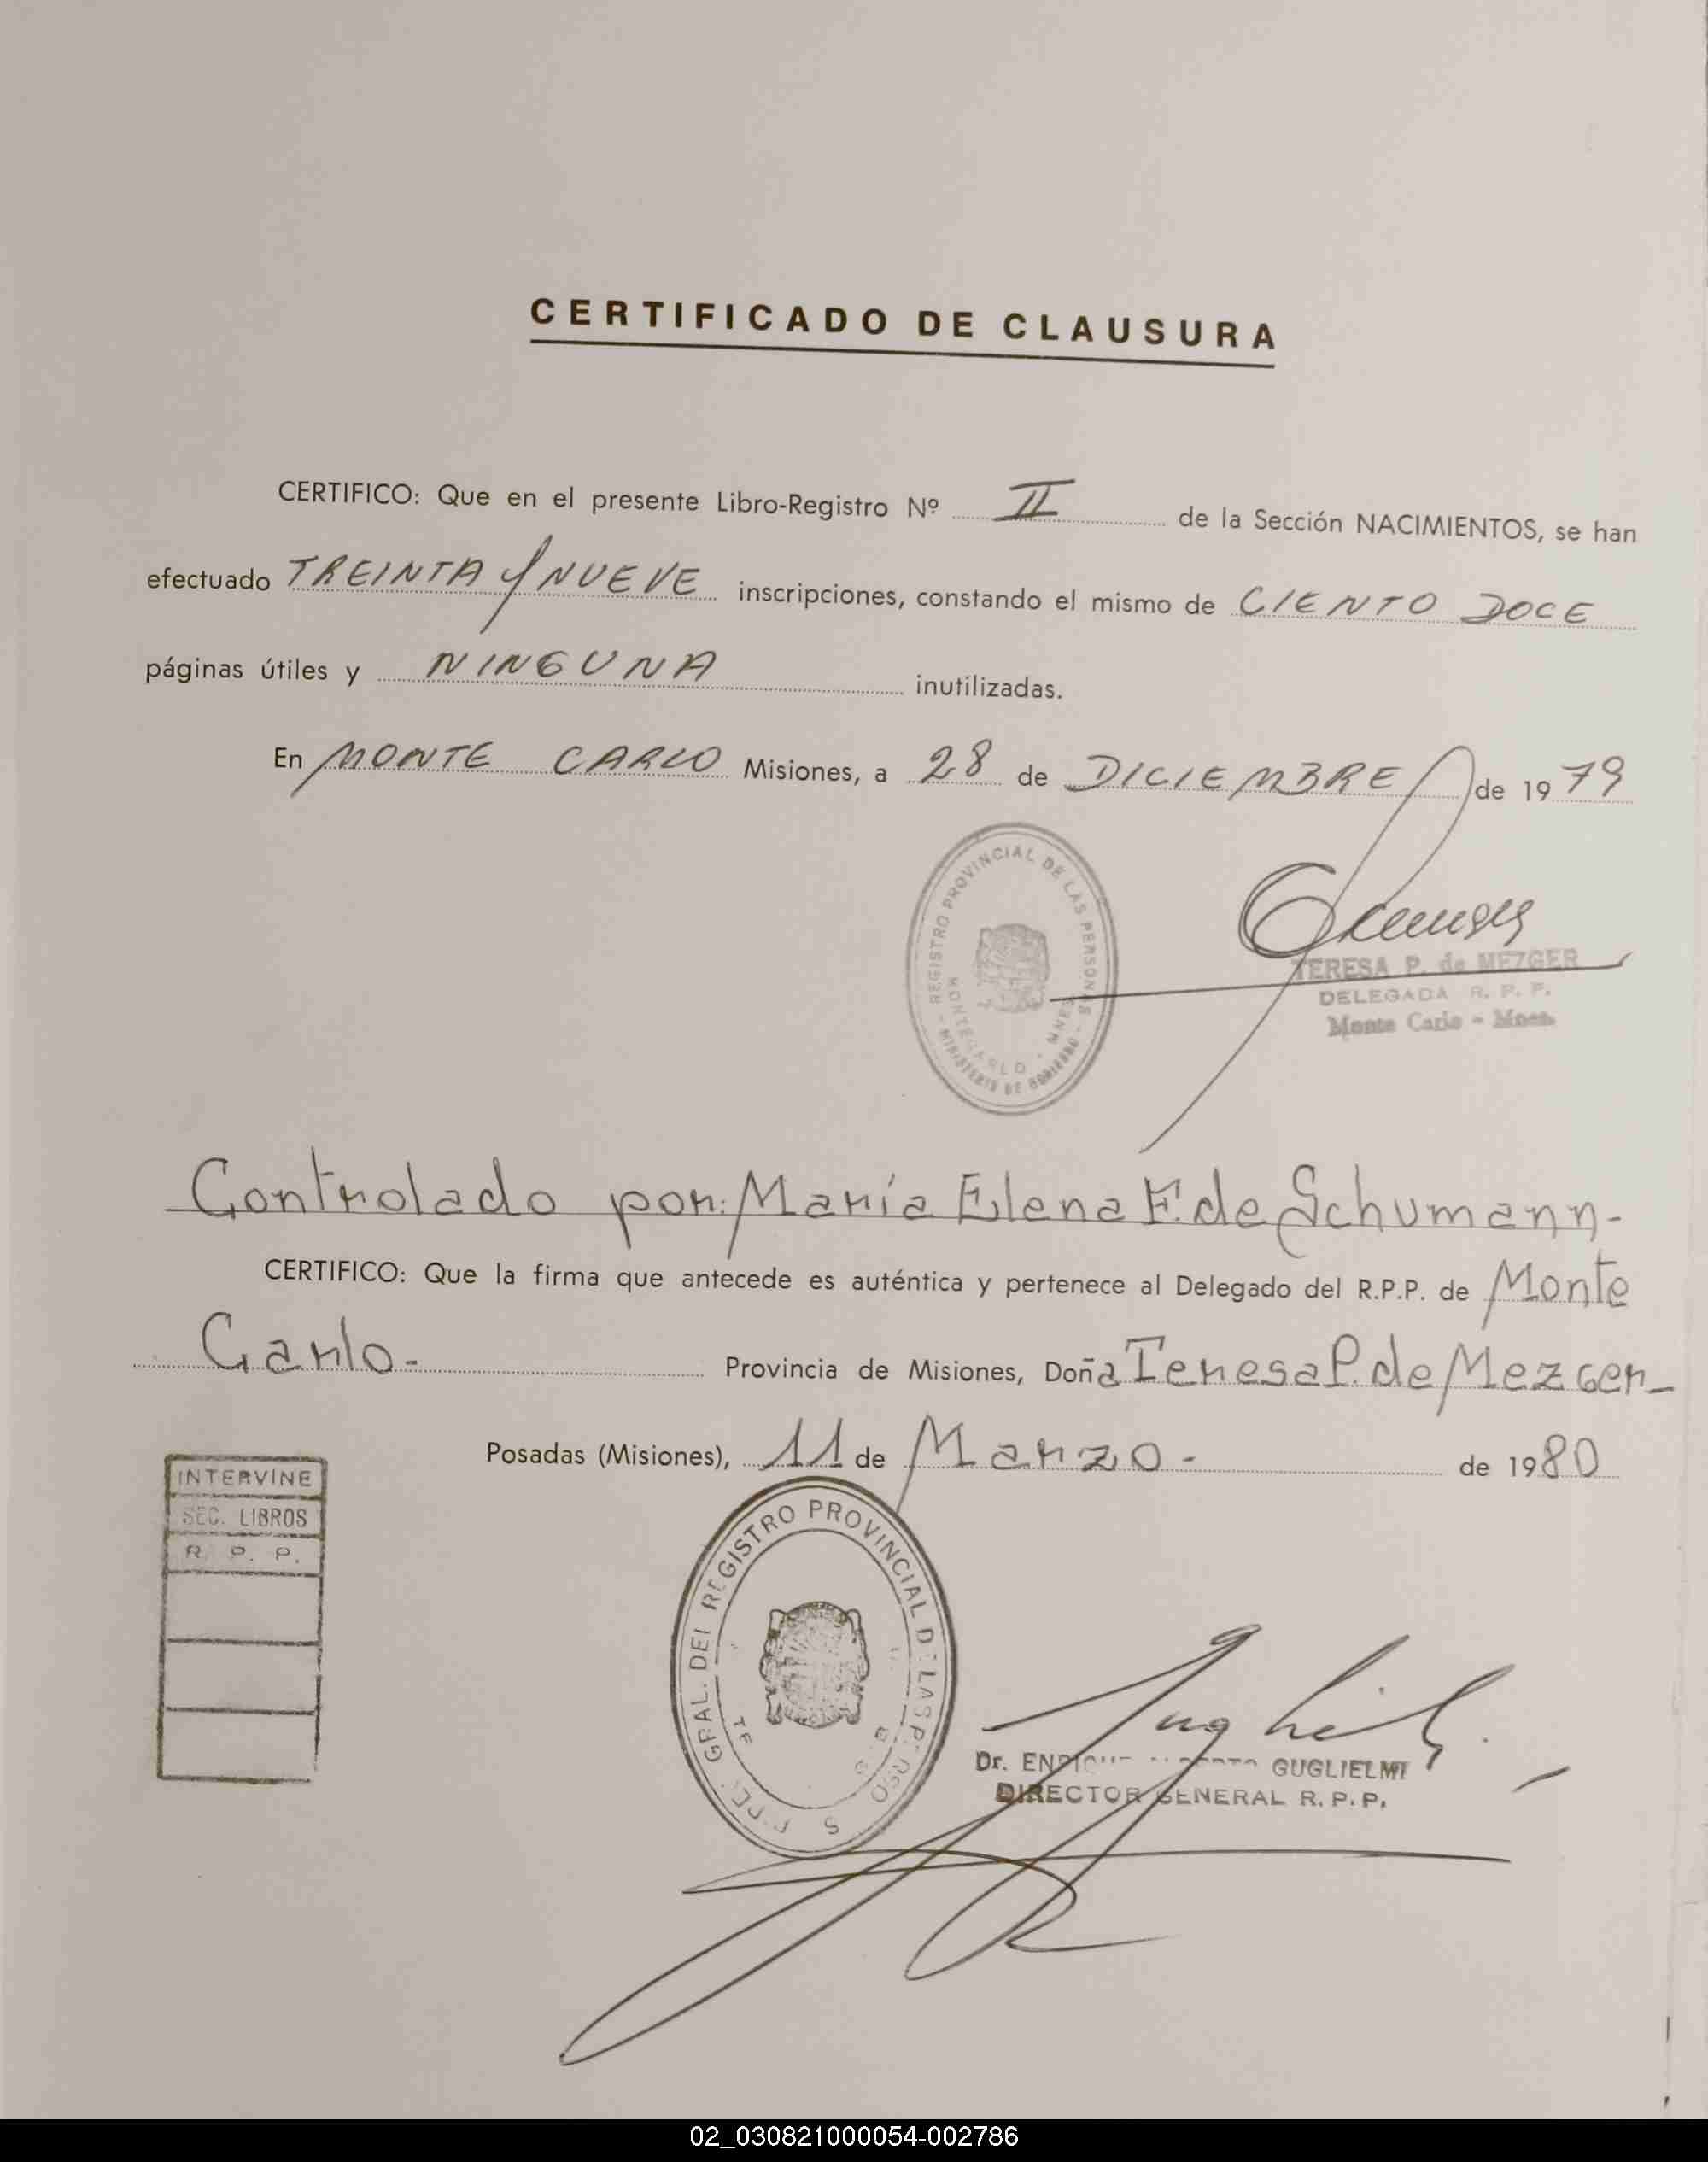 CERTIFICADO DE CLAUSURA
CERTIFICO: Que en el presente Libro-Registro Nº II de la Sección NACIMIENTOS, se han
efectuado TREINTA Y NUEVE inscripciones, constando el mismo de CIENTO DOCE
páginas útiles y NINGUNA inutilizadas.
En MONTE CARLO Misiones, a 28 de DICIEMBRE de 1979
REGISTRO PROVINCIAL DE LAS PERSONAS - MINISTERIO DE GOBIERNO -
MONTECARLO - MNES
TERESA P. de MEZGER
DELEGADA R. P. P.
Monte Carlo - Mnes.
Controlado por: María Elena F. de Schumann-
CERTIFICO: Que la firma que antecede es auténtica y pertenece al Delegado del R.P.P. de Monte
Carlo- Provincia de Misiones, Doña Teresa P. de Mezger-
Posadas (Misiones), 11 de Marzo- de 1980
INTERVINE
SEC. LIBROS
R. P. P.
GRAL. DEL REGISTRO PROVINCIAL DE LAS PERSONAS
Dr. GUGLIELMI
DIRECTOR GENERAL R. P. P.
02_030821000054-002786